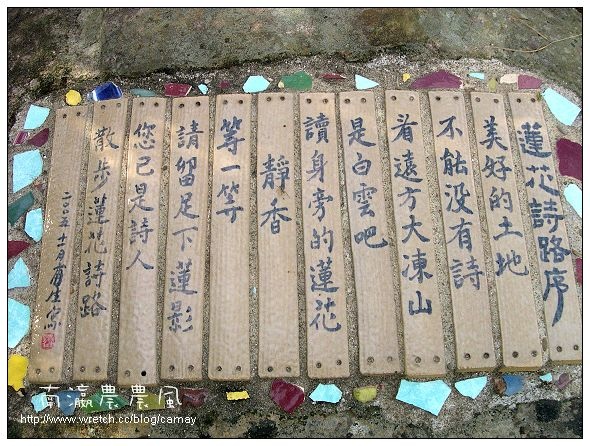 蓮花詩路序
美好的土地
不能没有詩
看遠方大凍山
是白雲吧
讀身旁的蓮花
靜香
等一等
請留足下蓮影
您已是詩人
散步蓮花詩路
二〇〇五 十二月
南瀛農農風
http://www.wretch.cc/blog/camay